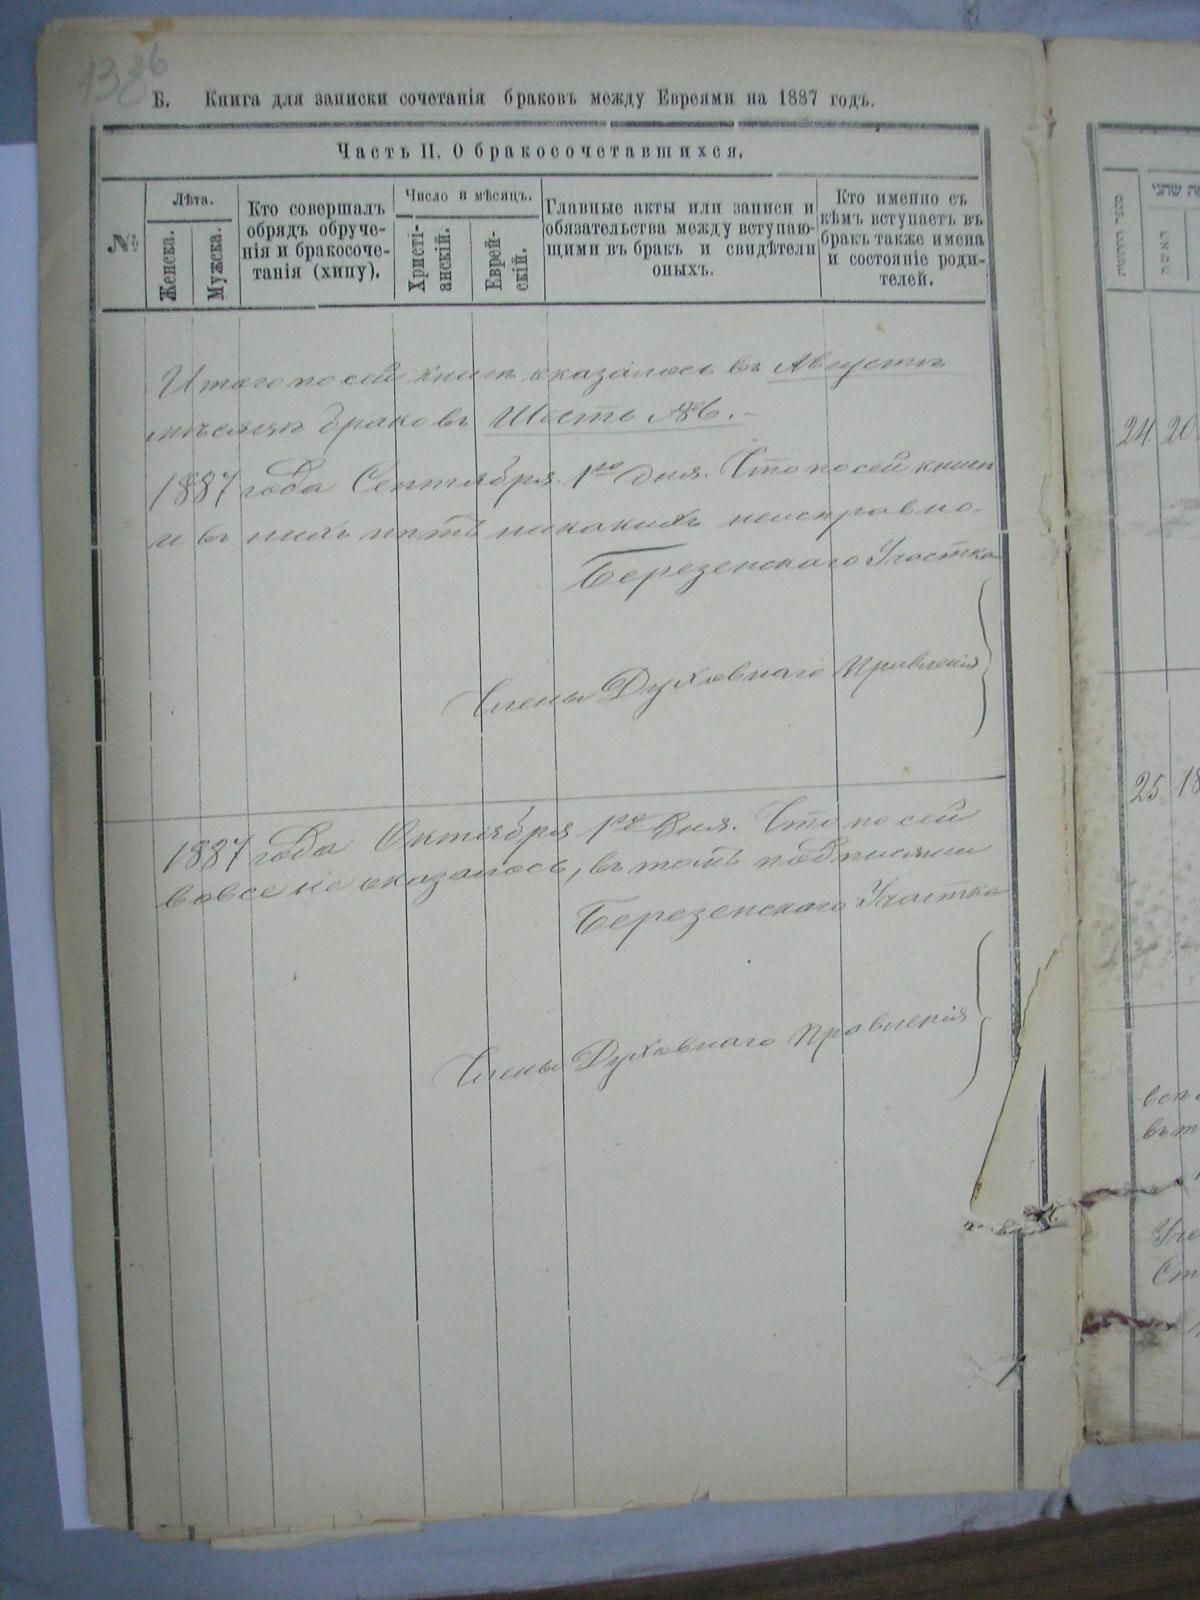 Б. Книга для записки сочетанія браковъ между Евреями на 1887 годъ.
Часть II. О бракосочетавшихся.
№
Лѣта.
Женска.
Мужска.
Кто совершалъ
обрядъ обруче-
нія и бракосоче-
танія (хипу).
Число и мѣсяцъ.
Христі-
анскій.
Еврей-
скій.
Главные акты или записи и
обязательства между вступаю-
щими въ бракъ и свидѣтели
оныхъ.
Кто именно съ
кѣмъ вступаетъ въ
бракъ также имена
и состояніе роди-
телей.
Итого по сей книгѣ оказалось въ Августѣ
мѣсяцѣ браковъ Шесть №6.
1887 года Сентября 1го дня. Что по сей книгѣ
и въ нихъ нѣтъ никакихъ неисправно-
Березенскаго Участка
Члены Духовнаго Правленія
1887 года Октября 1го дня. Что по сей
вовсе не оказалось, въ томъ подписями
Березенскаго Участка
Члены Духовнаго Правленія
24 20
25 18